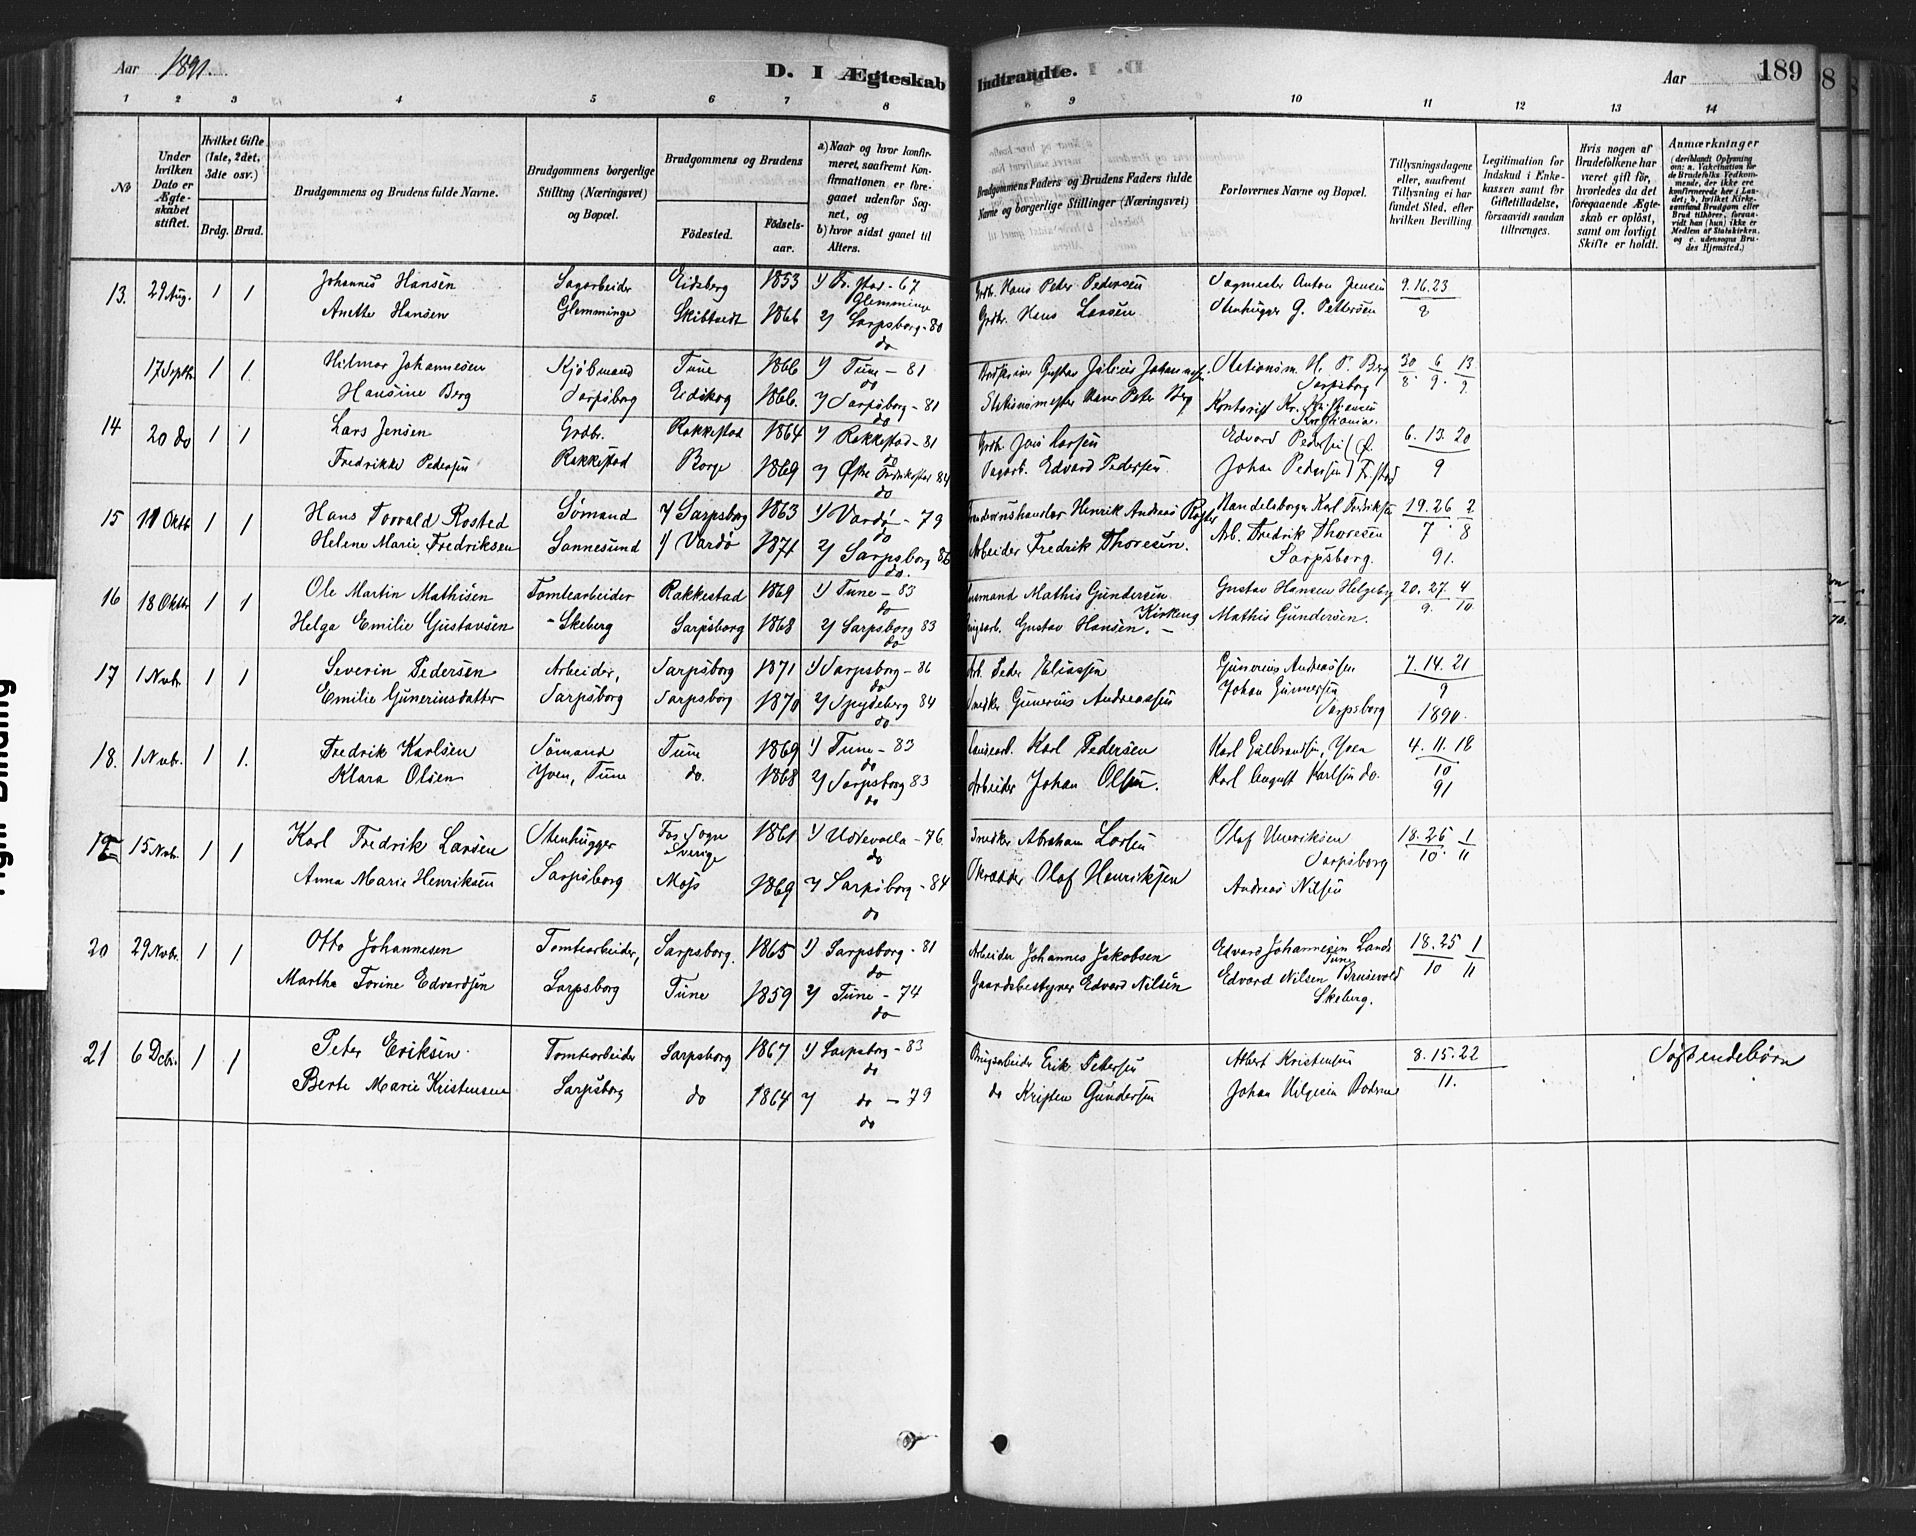 Aar 1891.
D. I Ægteskab Indtraadte.
Aar 189
1 2 3 4 5 6 7 8 9 10 11 12 13 14
No
Under hvilken Dato er Ægteskabet stiftet.
Hvilket Gifte (1ste, 2det, 3die osv.)
Brdg. Brud.
Brudgommens og Brudens fulde Navne.
Brudgommens borgerlige Stilling (Næringsvei) og Bopæl.
Brudgommens og Brudens
Födested. Födselsaar.
a) Naar og hvor konfirmeret, saafremt Konfirmationen er foregaaet udenfor Sognet, og
b) hvor sidst gaaet til Alters.
Brudgommens Faders og Brudens Faders fulde Navne og borgerlige Stillinger (Næringsvei)
Forlovernes Navne og Bopæl.
Tillysningsdagene eller, saafremt Tillysning ei har fundet Sted, efter hvilken Bevilling
Legitimation for Indskud i Enkekassen samt for Giftetilladelse, forsaavidt saadan tiltrænges.
Hvis nogen af Brudefolkene har været gift för, hvorledes da det foregaaende Ægteskab er oplöst, samt om lovligt Skifte er holdt.
Anmærkninger
13. 29 Aug. 1 1 Johannes Hansen Sagarbeider Eidsberg 1853 1) Fr.stad - 67 Glemminge Grdbr. Hans Peter Pedersen Sagmester Anton Jensen 9.16.23
Anette Hansen Glemminge Skibtvedt 1866 2) Sarpsborg - 80 do Grdbr. Hans Larsen Stenhugger G. Pettersen 8
17 Septbr 1 1. Hilmar Johannesen Kjöbmand Tune 1866 1) Tune - 81 do Gustav Julius Johannesen Stationsm. H. P. Berg Sarpsborg 30/8. 6/9. 13/9.
Hansine Berg Sarpsborg Eidskog 1866. 2) Sarpsborg - 81 do Stationsmester Hans Peter Berg Kontorist Kr. Kristiania.
14 20 do 1 1 Lars Jensen Grdbr. Rakkestad 1864 1) Rakkestad - 81 do Grdb. Jens Larsen Edvard Pedersen 6.13.20
Fredrikke Pedersen Rakkestad Borge 1869 2) Östre Fredrikstad 84 do Sagarb. Edvard Pedersen. Johan Pedersen F.stad 9
15 11 Oktb. 1 1 Hans Torvald Rosted Sömand 1) Sarpsborg 1863 1) Vardö - 79 do Henrik Andreas Handelsborger Karl Fredriksen 19.26/7. 2/8
Helene Marie Fredriksen Sannesund 1) Vardö 1871 2) Sarpsborg 86 do. Arbeider Fredrik Thoresen. Arb. Fredrik Thoresen Sarpsborg. 91.
16 18 Oktbr 1 1 Ole Martin Mathisen Tomtearbeider Rakkestad 1869 1) Tune - 83 do Mathis Gundersen Gustav Hansen Helgeby 20.27/9. 4/10.
Helga Emilie Gustavsen - Skeberg Sarpsborg 1868 2) Sarpsborg 83 do Gustav Hansen. - Kirkeng Mathis Gundersen.
17 1 Nvbr. 1 1 Severin Pedersen Arbeider, Sarpsborg 1871 1) Sarpsborg - 86 do Arb. Peder Eliassen Gunerius Andreassen 7.14.21
Emilie Guneriusdatter Sarpsborg Sarpsborg 1870 2) Spydeberg 84 do Snedker Gunerius Andreassen Johan Gunnersen Sarpsborg 9 1890.
18. 1 Nvbr. 1 1. Fredrik Karlsen Sömand Tune 1869 1) Tune - 83 do Karl Pedersen Karl Gulbrandsen, Yven 4.11.18
Klara Olsen Yven, Tune do. 1868 2) Sarpsborg 83 do Arbeider Johan Olsen. Karl August Karlsen do. 10 91
19 15 Nvb. 1 1 Karl Fredrik Larsen Stenhugger Fos Sogn Sverige 1861 1) Uddevalla - 76 do Snedker Abraham Larsen Olaf Henriksen Sarpsborg 18.25/10. 1/11
Anna Marie Henriksen Sarpsborg Moss 1869 2) Sarpsborg - 84 do Skrædder Olaf Henriksen Andreas Nilsen
20 29 Nvbr. 1 1 Otto Johannesen Tomtearbeider, Sarpsborg. 1865 1) Sarpsborg - 81 do Arbeider Johannes Jakobsen Edvard Johannesen Lande Tune 18.25/10 1/11
Marthe Torine Edvardsen Sarpsborg Tune 1859 2) Tune - 74 do Gaardsbestyrer Edvard Nilsen Edvard Nilsen Brusevold Skeberg.
21 6 Dcbr. 1 1 Peter Eriksen. Tomtearbeider Sarpsborg 1867 1) Sarpsborg - 83 do Brugsarbeider Erik Pettersen Albert Kristensen 8.15.22 Söskendebörn
Berte Marie Kristensen Sarpsborg do 1864 2) do - 79 do do Kristen Gundersen Johan Helgesen 11.